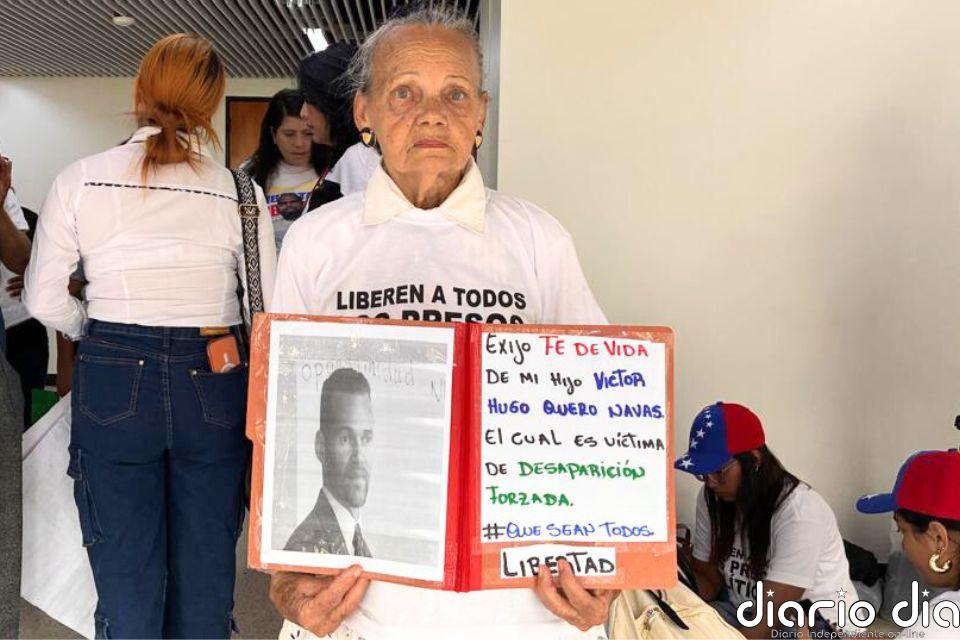 LIBEREN A TODOS
LOS PRESOS
oportunidad
EXIJO FE DE VIDA
DE MI HIJO VICTOR
HUGO QUERO NAVAS.
El CUAL ES VÍCTIMA
DE DESAPARICIÓN
FORZADA.
#QUE SEAN TODOS.
LIBERTAD
diario dia
Diario Independiente on-line